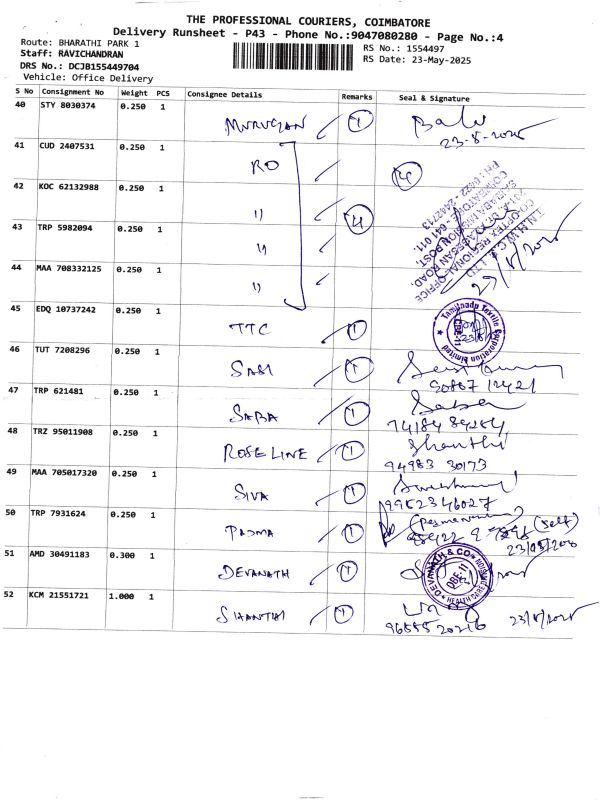 THE PROFESSIONAL COURIERS, COIMBATORE
Delivery Runsheet - P43 - Phone No.:9047080280 - Page No.:4
Route: BHARATHI PARK 1
RS No.: 1554497
Staff: RAVICHANDRAN
RS Date: 23-May-2025
DRS No.: DCJB155449704
Vehicle: Office Delivery
S No Consignment No Weight PCS Consignee Details Remarks Seal & Signature
40 STY 8030374 0.250 1 MURUGAN 1 Balu
23-8-2025
41 CUD 2407531 0.250 1 RO 4
42 KOC 62132988 0.250 1 " 4
43 TRP 5982094 0.250 1 "
44 MAA 708332125 0.250 1 "
CO-OPTEX REGIONAL OFFICE
SAIBABA MISSION POST,
COIMBATORE - 641 011.
PH: 0422-2442713
45 EDQ 10737242 0.250 1 TTC 1
Tamilnadu Textile Corporation Limited
CBE-11
46 TUT 7208296 0.250 1 SASI 1
90867 12421
47 TRP 621481 0.250 1 SABA 1 Saba
74184 89284
48 TRZ 95011908 0.250 1 ROSELINE 1 Shanthi
94983 30173
49 MAA 705017320 0.250 1 SIVA 1
9952346027
50 TRP 7931624 0.250 1 PADMA 1 (self)
51 AMD 30491183 0.300 1 DEVANATH 1
DEVANATH & CO
CBE-11
52 KCM 21551721 1.000 1 SHANTHI 1
96555 20216